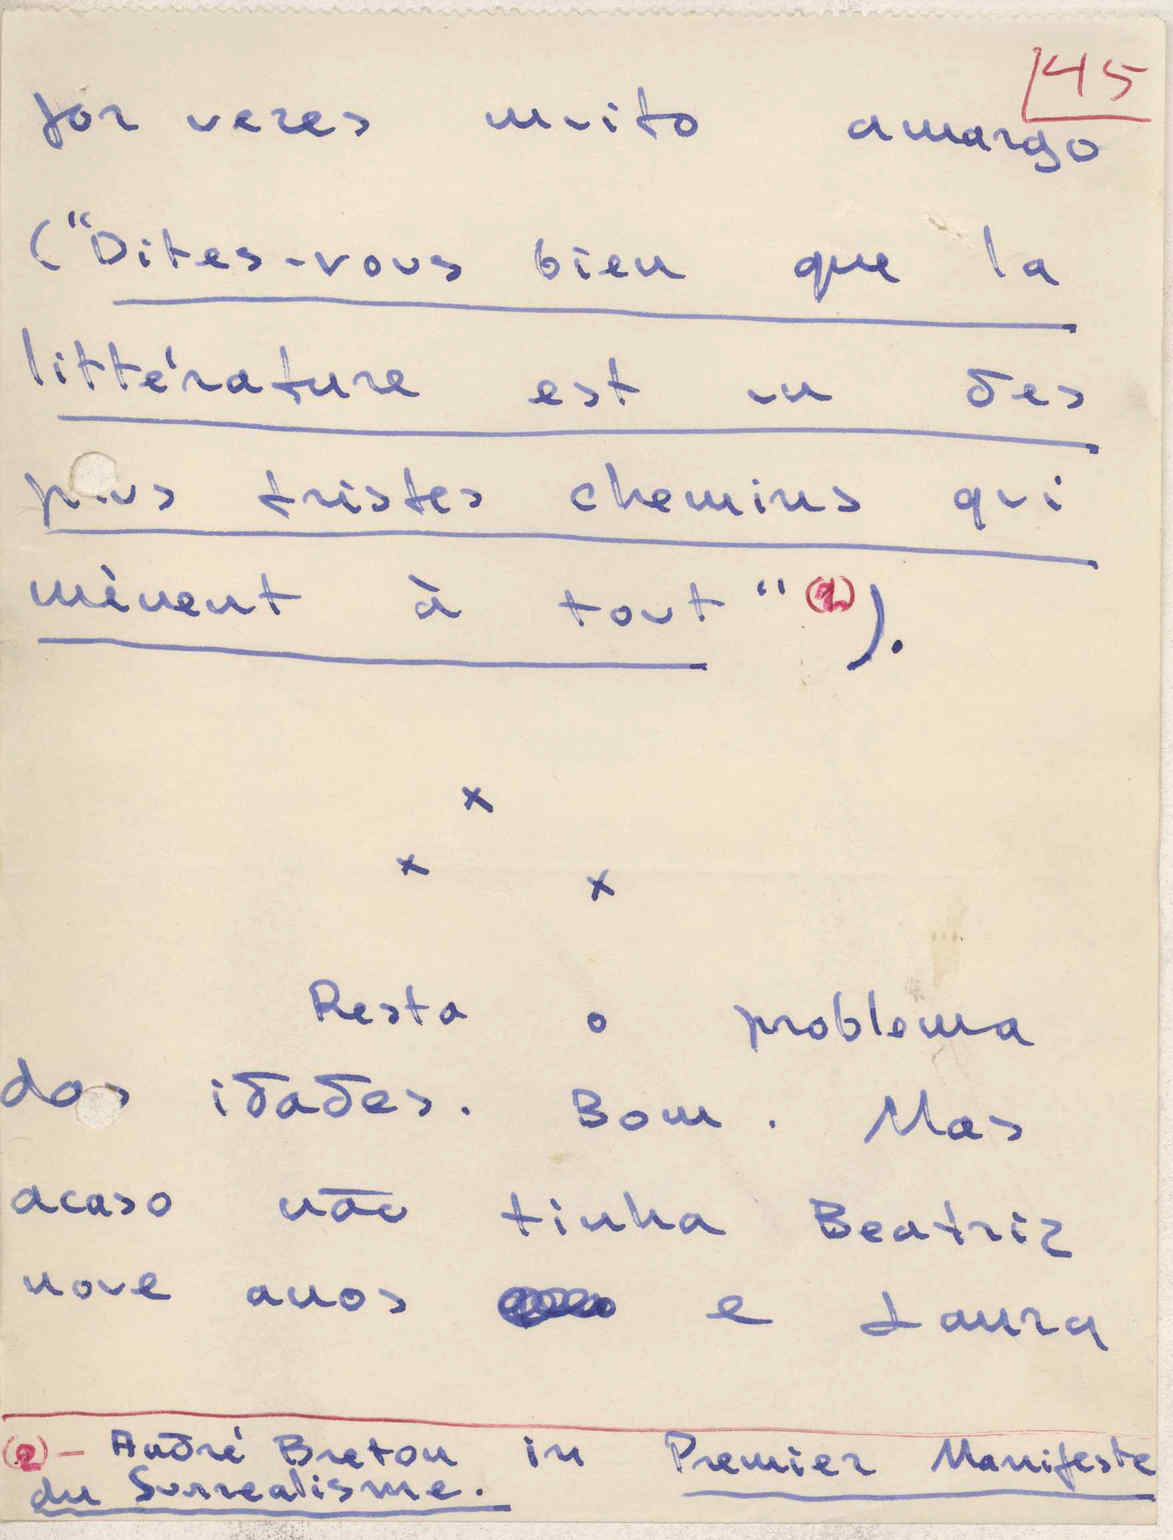 45
por vezes muito amargo
("Dites-vous bien que la
littérature est un des
plus tristes chemins qui
mènent à tout" (2)).
x
x x
Resta o problema
das idades. Bom. Mas
acaso não tinha Beatriz
nove anos e Laura
(2) - André Breton in Premier Manifeste
du Surrealisme.